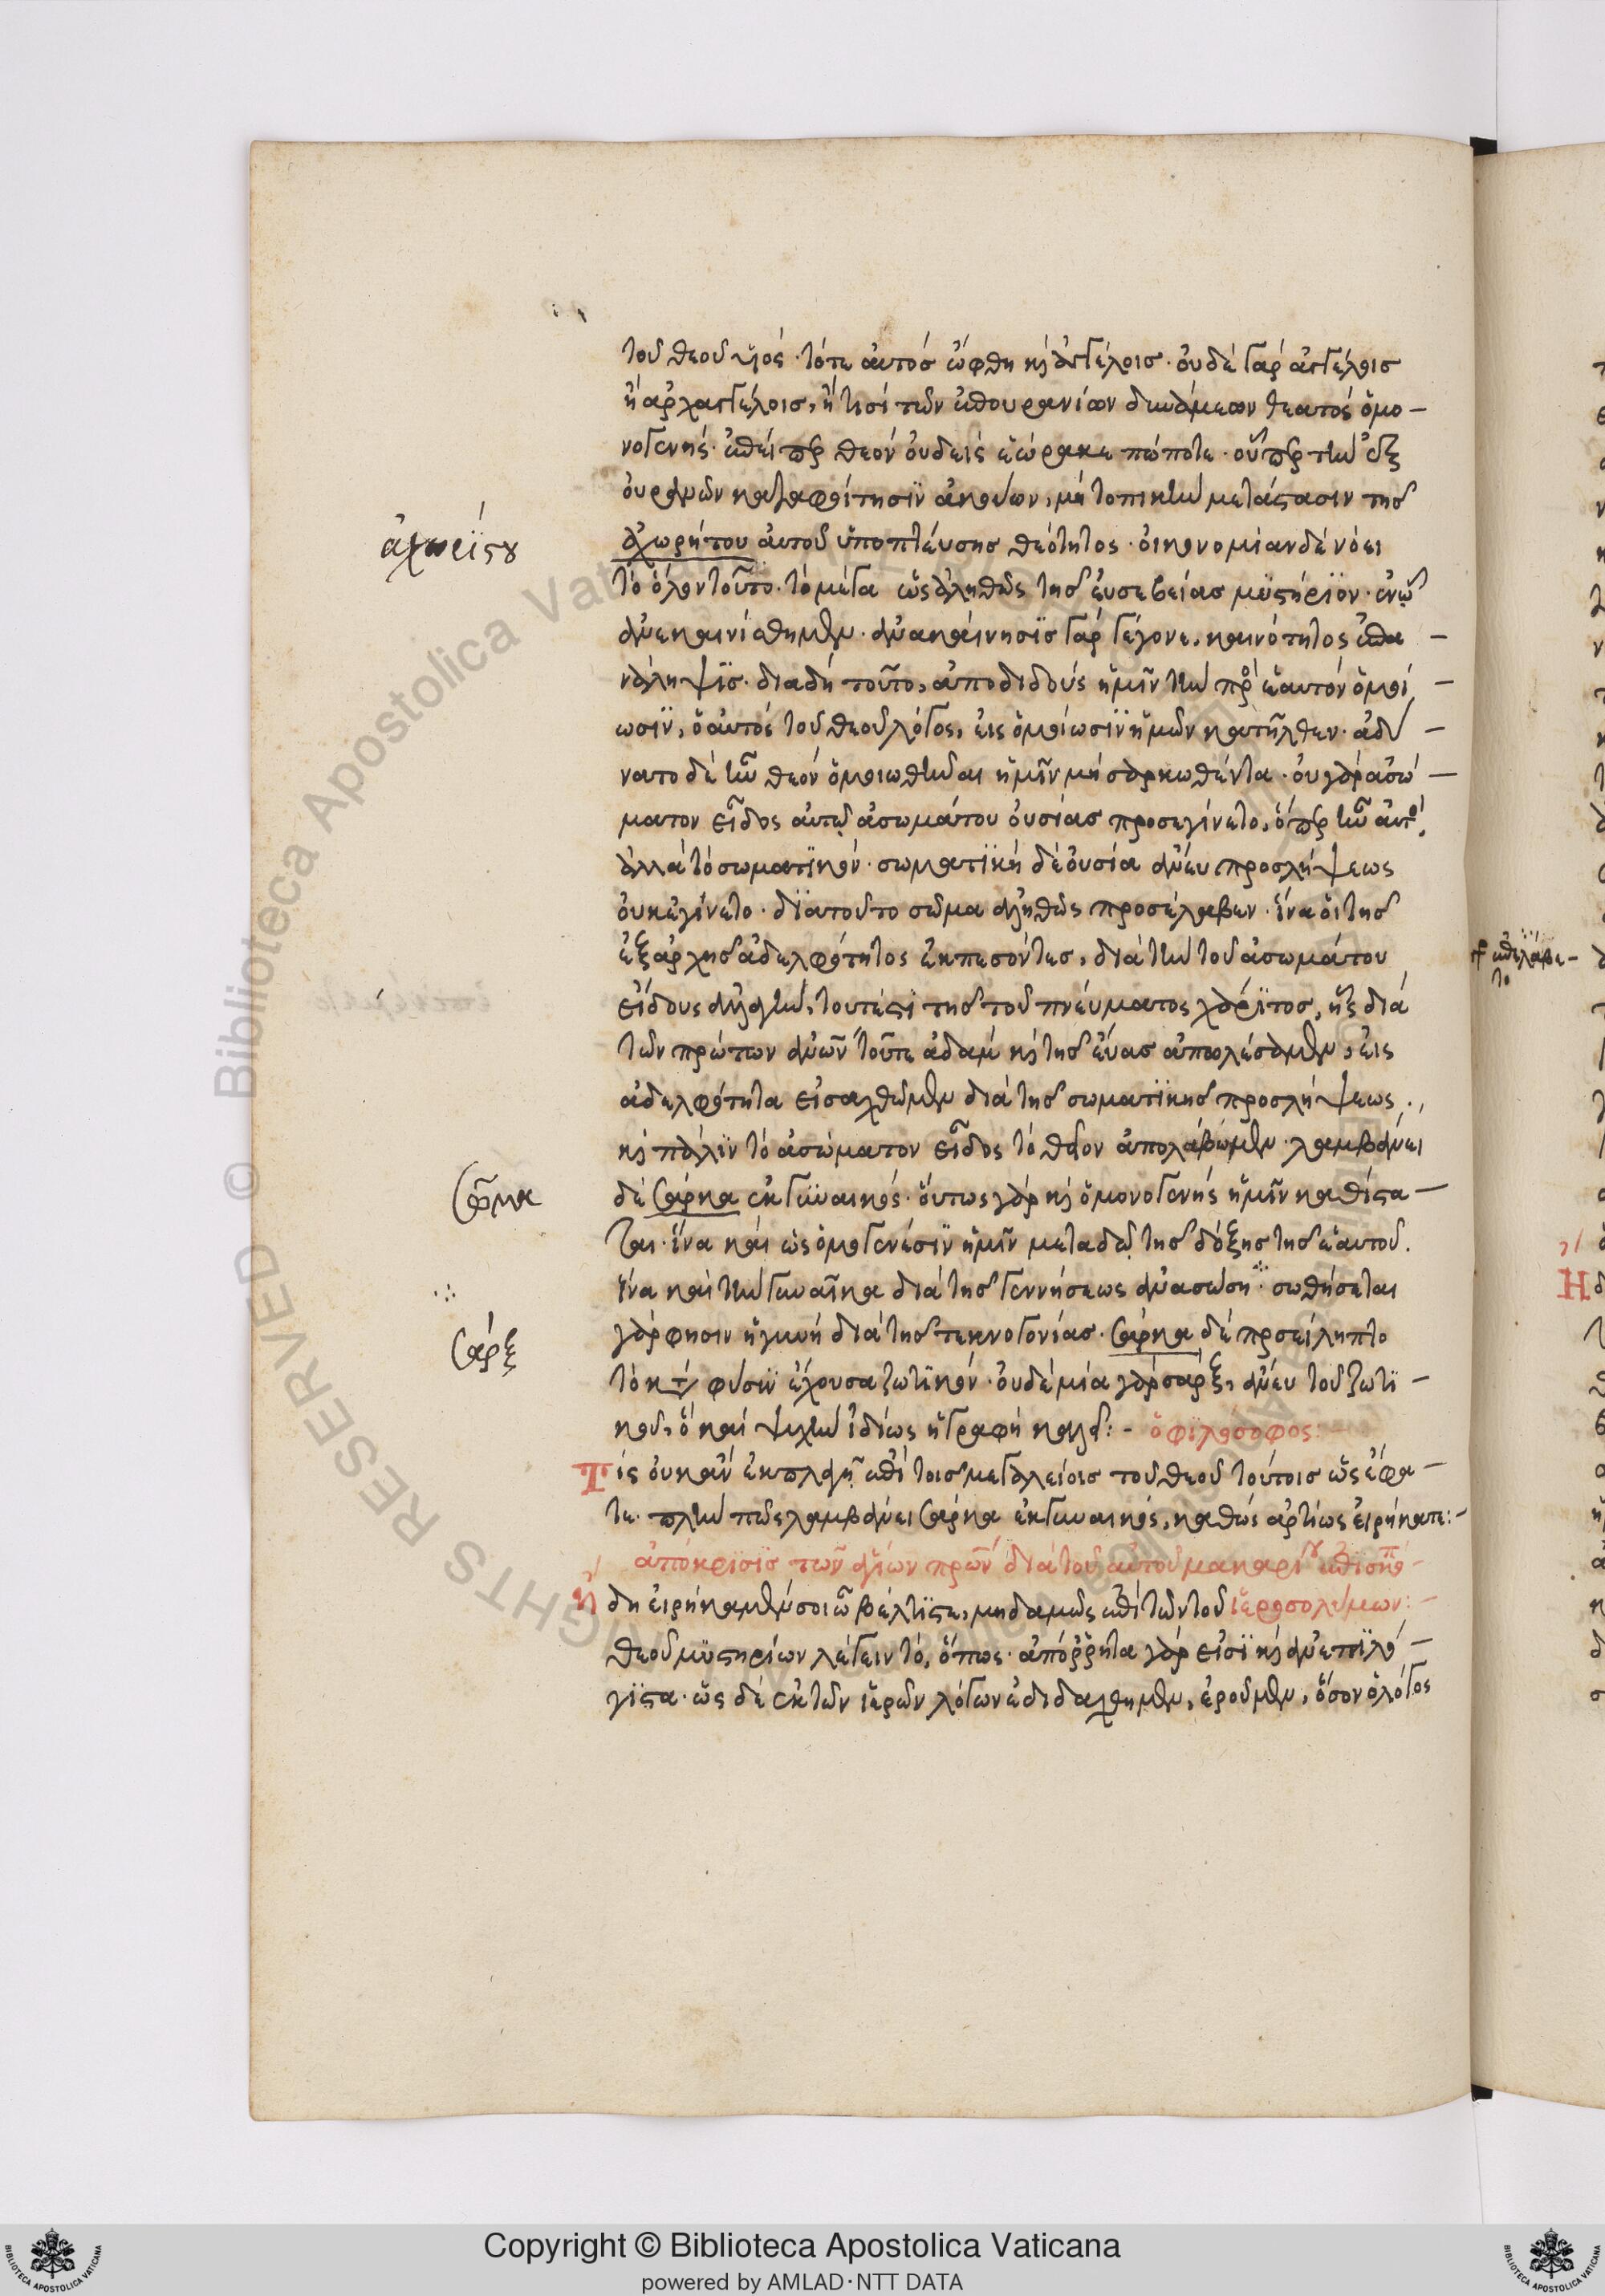 τοῦ θεοῦ υἱός· τότε αὐτὸς ὤφθη καὶ ἀγγέλοις· οὐδὲ γὰρ ἀγγέλοις
ἢ ἀρχαγγέλοις, ἤ τισι τῶν ἐπουρανίων δυνάμεων θεατὸς ὁ μο-
νογενής· ἐπείπερ θεὸν οὐδεὶς ἑώρακε πώποτε· οὗπερ τὴν ἐξ
οὐρανῶν καταφοίτησιν ἀκούων, μὴ τοπικὴν μετάστασιν τῆς
ἀχωρήτου αὐτοῦ ὑποπτεύσῃς θεότητος· οἰκονομίαν δὲ νόει
ἀχωρίστου
τὸ ὅλον τοῦτο· τὸ μέγα ὡς ἀληθῶς τῆς εὐσεβείας μυστήριον· ἐν ᾧ
ἀνεκαινίσθημεν· ἀνακαίνησις γὰρ γέγονε, καινότητος ἐπα-
νάληψις· διὰ δὴ τοῦτο, ἀποδιδοὺς ἡμῖν τὴν πρὸς ἑαυτὸν ὁμοί-
ωσιν, ὁ αὐτὸς τοῦ θεοῦ λόγος, εἰς ὁμοίωσιν ἡμῶν κατῆλθεν· ἀδύ-
νατο δὲ ἦν θεὸν ὁμοιωθῆναι ἡμῖν μὴ σαρκωθέντα· οὐ γὰρ ἀσώ-
ματον εἶδος αὐτῷ ἀσωμάτου οὐσίας προσεγίνετο, ὅπερ ἦν αὐτός,
ἀλλὰ τὸ σωματικόν· σωματικὴ δὲ οὐσία ἄνευ προσλήψεως
οὐκ ἐγίνετο· διὰ τοῦτο σῶμα ἀληθῶς προσέλαβεν· ἵνα οἱ τῆς
ἐξ ἀρχῆς ἀδελφότητος ἐκπεσόντες, διὰ τὴν τοῦ ἀσωμάτου
εἴδους ἀλλαγήν, τουτέστι τῆς τοῦ πνεύματος χάριτος, ἧς διὰ
τῶν πρώτων ἀνθρώπων τοῦτε ἀδὰμ καὶ τῆς εὔας ἀπωλέσαμεν, εἰς
ἀδελφότητα εἰσαχθῶμεν διὰ τῆς σωματικῆς προσλήψεως.,
καὶ πάλιν τὸ ἀσώματον εἶδος τὸ θεῖον ἀπολάβωμεν· λαμβάνει
δὲ σάρκα ἐκ γυναικός· οὕτως γὰρ καὶ ὁ μονογενὴς ἡμῖν καθίστα-
σῶμα
ται· ἵνα καὶ ὡς ὁμογενέσιν ἡμῖν μεταδῷ τῆς δόξης τῆς ἑαυτοῦ.
ἵνα καὶ τὴν γυναῖκα διὰ τῆς γεννήσεως ἀνασώσῃ· σωθήσεται
γάρ φησιν ἡ γυνὴ διὰ τῆς τεκνογονίας· σάρκα δὲ προσείληπτο
σάρξ
τὸ κατὰ φύσιν ἔχουσα ζωτικόν· οὐδὲ μία γὰρ σάρξ, ἄνευ τοῦ ζωτι-
κοῦ, ὃ καὶ ψυχὴν ἰδίως ἡ γραφὴ καλεῖ:- ὁ φιλόσοφος:
Τίς οὐκ ἂν ἐκπλαγῇ ἐπὶ τοῖς μεγαλείοις τοῦ θεοῦ τούτοις ὡς ἔφα-
τε· πλὴν πῶς λαμβάνει σάρκα ἐκ γυναικός, καθὼς ἀρτίως εἰρήκατε:-
ἀπόκρισις τῶν ἁγίων πρων διὰ τοῦ αὐτοῦ μακαρίου ἐπισκόπ-
ἤδη εἰρήκαμεν σοι ὦ βέλτιστε, μηδαμῶς ἐπὶ τῶν τοῦ ἱεροσολύμων:-
θεοῦ μυστηρίων λέγειν τό, ὅπως· ἀπόρρητα γάρ εἰσι καὶ ἀνεπιλό-
γιστα· ὡς δὲ ἐκ τῶν ἱερῶν λόγων ἐδιδάχθημεν, ἐροῦμεν, ὅσον ὁ λόγος
ἐπελάβε-
το
Copyright © Biblioteca Apostolica Vaticana
powered by AMLAD·NTT DATA